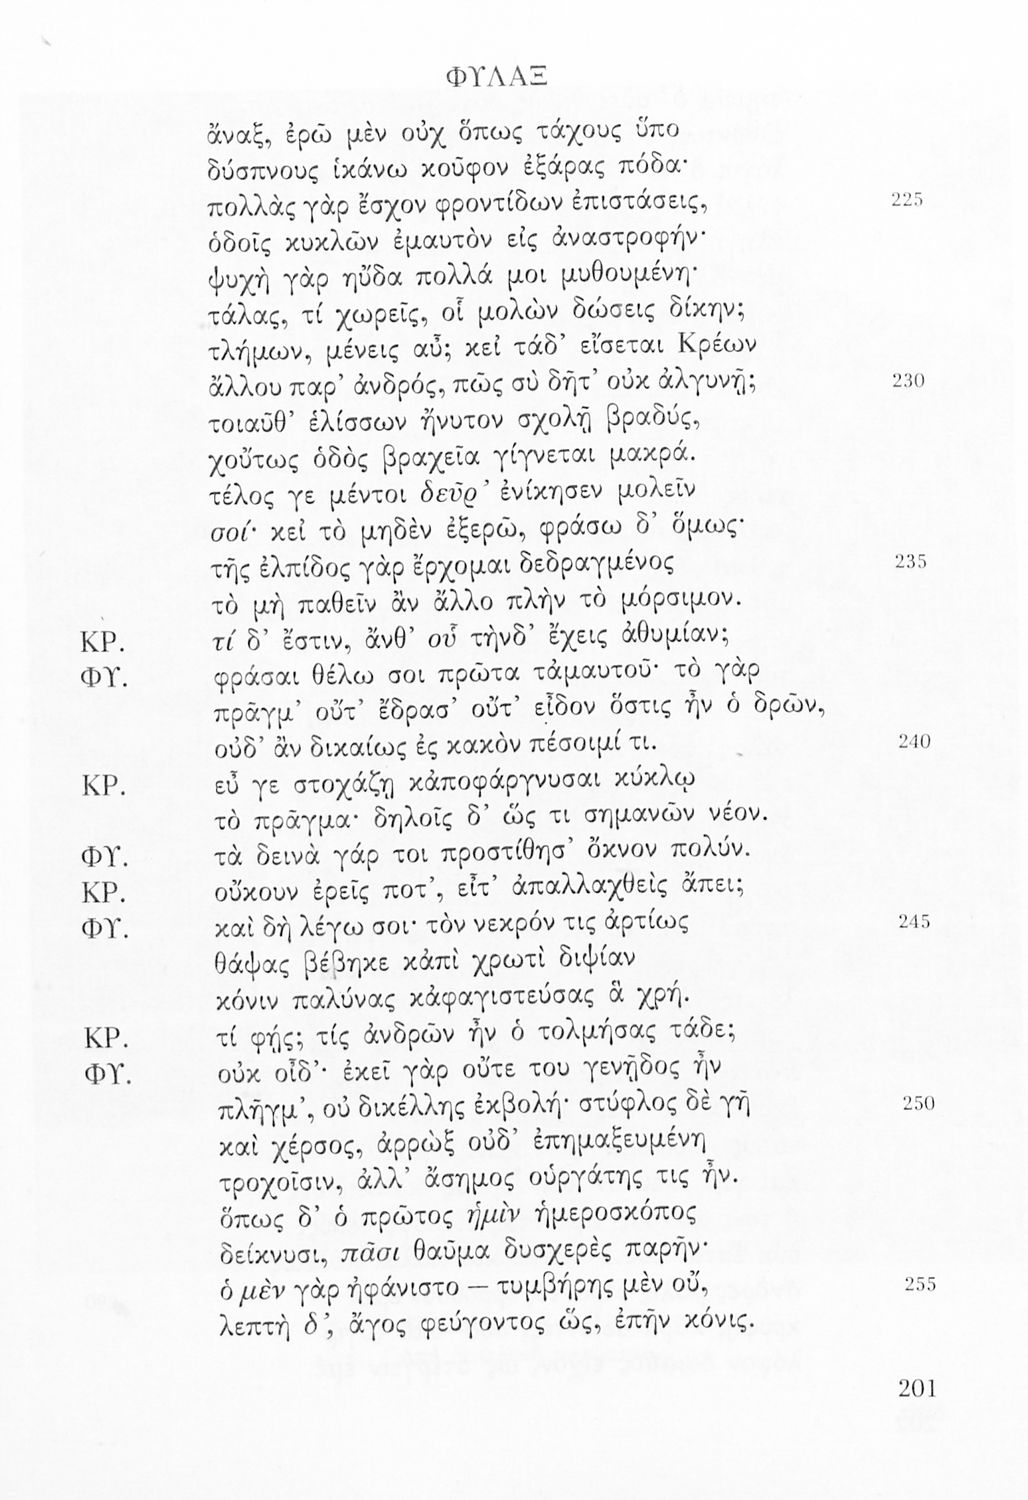 ΦΥΛΑΞ
ἄναξ, ἐρῶ μὲν οὐχ ὅπως τάχους ὕπο
δύσπνους ἱκάνω κοῦφον ἐξάρας πόδα·
πολλὰς γὰρ ἔσχον φροντίδων ἐπιστάσεις, 225
ὁδοῖς κυκλῶν ἐμαυτὸν εἰς ἀναστροφήν·
ψυχὴ γὰρ ηὔδα πολλά μοι μυθουμένη·
τάλας, τί χωρεῖς, οἷ μολὼν δώσεις δίκην;
τλήμων, μένεις αὖ; κεἰ τάδ’ εἴσεται Κρέων
ἄλλου παρ’ ἀνδρός, πῶς σὺ δῆτ’ οὐκ ἀλγυνῇ; 230
τοιαῦθ’ ἑλίσσων ἤνυτον σχολῇ βραδύς,
χοὔτως ὁδὸς βραχεῖα γίγνεται μακρά.
τέλος γε μέντοι δεῦρ’ ἐνίκησεν μολεῖν
σοί· κεἰ τὸ μηδὲν ἐξερῶ, φράσω δ’ ὅμως·
τῆς ἐλπίδος γὰρ ἔρχομαι δεδραγμένος 235
τὸ μὴ παθεῖν ἂν ἄλλο πλὴν τὸ μόρσιμον.
ΚΡ. τί δ’ ἔστιν, ἄνθ’ οὗ τὴνδ’ ἔχεις ἀθυμίαν;
ΦΥ. φράσαι θέλω σοι πρῶτα τἀμαυτοῦ· τὸ γὰρ
πρᾶγμ’ οὔτ’ ἔδρασ’ οὔτ’ εἶδον ὅστις ἦν ὁ δρῶν,
οὐδ’ ἂν δικαίως ἐς κακὸν πέσοιμί τι. 240
ΚΡ. εὖ γε στοχάζῃ κἀποφάργνυσαι κύκλῳ
τὸ πρᾶγμα· δηλοῖς δ’ ὥς τι σημανῶν νέον.
ΦΥ. τὰ δεινὰ γάρ τοι προστίθησ’ ὄκνον πολύν.
ΚΡ. οὔκουν ἐρεῖς ποτ’, εἶτ’ ἀπαλλαχθεὶς ἄπει;
ΦΥ. καὶ δὴ λέγω σοι· τὸν νεκρόν τις ἀρτίως 245
θάψας βέβηκε κἀπὶ χρωτὶ διψίαν
κόνιν παλύνας κἀφαγιστεύσας ἃ χρή.
ΚΡ. τί φῄς; τίς ἀνδρῶν ἦν ὁ τολμήσας τάδε;
ΦΥ. οὐκ οἶδ’· ἐκεῖ γὰρ οὔτε του γενῇδος ἦν
πλῆγμ’, οὐ δικέλλης ἐκβολή· στύφλος δὲ γῆ 250
καὶ χέρσος, ἀρρὼξ οὐδ’ ἐπημαξευμένη
τροχοῖσιν, ἀλλ’ ἄσημος οὑργάτης τις ἦν.
ὅπως δ’ ὁ πρῶτος ἡμὶν ἡμεροσκόπος
δείκνυσι, πᾶσι θαῦμα δυσχερὲς παρῆν·
ὁ μὲν γὰρ ἠφάνιστο – τυμβήρης μὲν οὔ, 255
λεπτὴ δ’, ἄγος φεύγοντος ὥς, ἐπῆν κόνις.
201